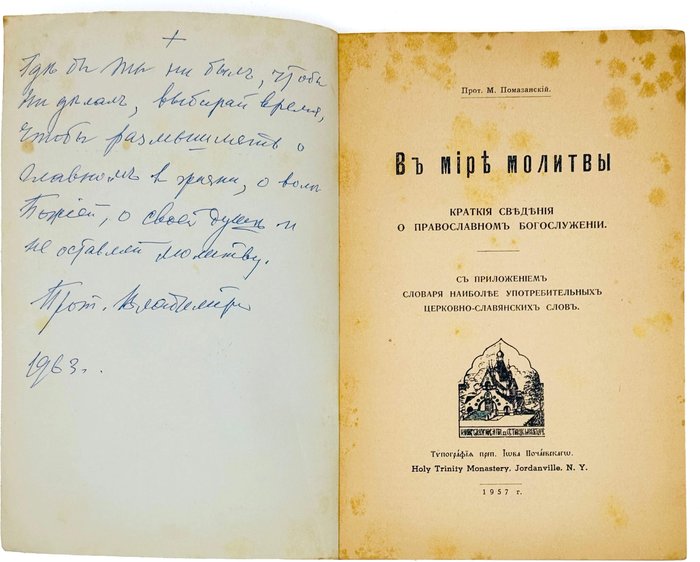 Гдѣ бы ты ни былъ, чтобы
ни дѣлалъ, выбирай время,
чтобы размышлять о
главномъ в жизни, о волѣ
Божіей, о своей душѣ и
не оставляй молитву.
Прот. Владимиръ
1963 г.
Прот. М. Помазанскій.
Въ мірѣ молитвы
КРАТКІЯ СВѢДѢНІЯ
О ПРАВОСЛАВНОМЪ БОГОСЛУЖЕНІИ.
СЪ ПРИЛОЖЕНІЕМЪ
СЛОВАРЯ НАИБОЛѢЕ УПОТРЕБИТЕЛЬНЫХЪ
ЦЕРКОВНО-СЛАВЯНСКИХЪ СЛОВЪ.
Типографія преп. Іова Почаевскаго.
Holy Trinity Monastery, Jordanville, N. Y.
1957 г.